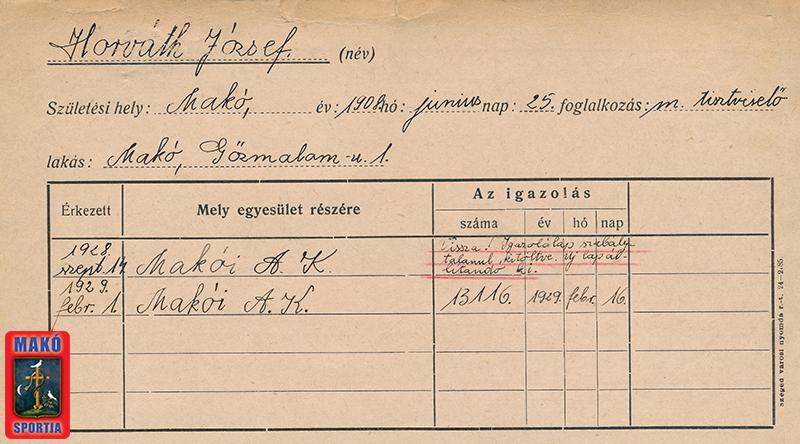 Horváth József. (név)
Születési hely: Makó, év: 1908 hó: junius nap: 25. foglalkozás: m. tisztviselő
lakás: Makó, Gőzmalom-u. 1.
Az igazolás
Érkezett Mely egyesület részére száma év hó nap
1928. szept. 14. Makói A. K. Vissza! Igazolólap szabály-
talanul kitöltve. Uj lap ál-
litandó ki.
1929. febr. 1. Makói A. K. 13116. 1929. febr. 16.
szeged városi nyomda r.-t. 24-2.85.
MAKÓ
SPORTJA